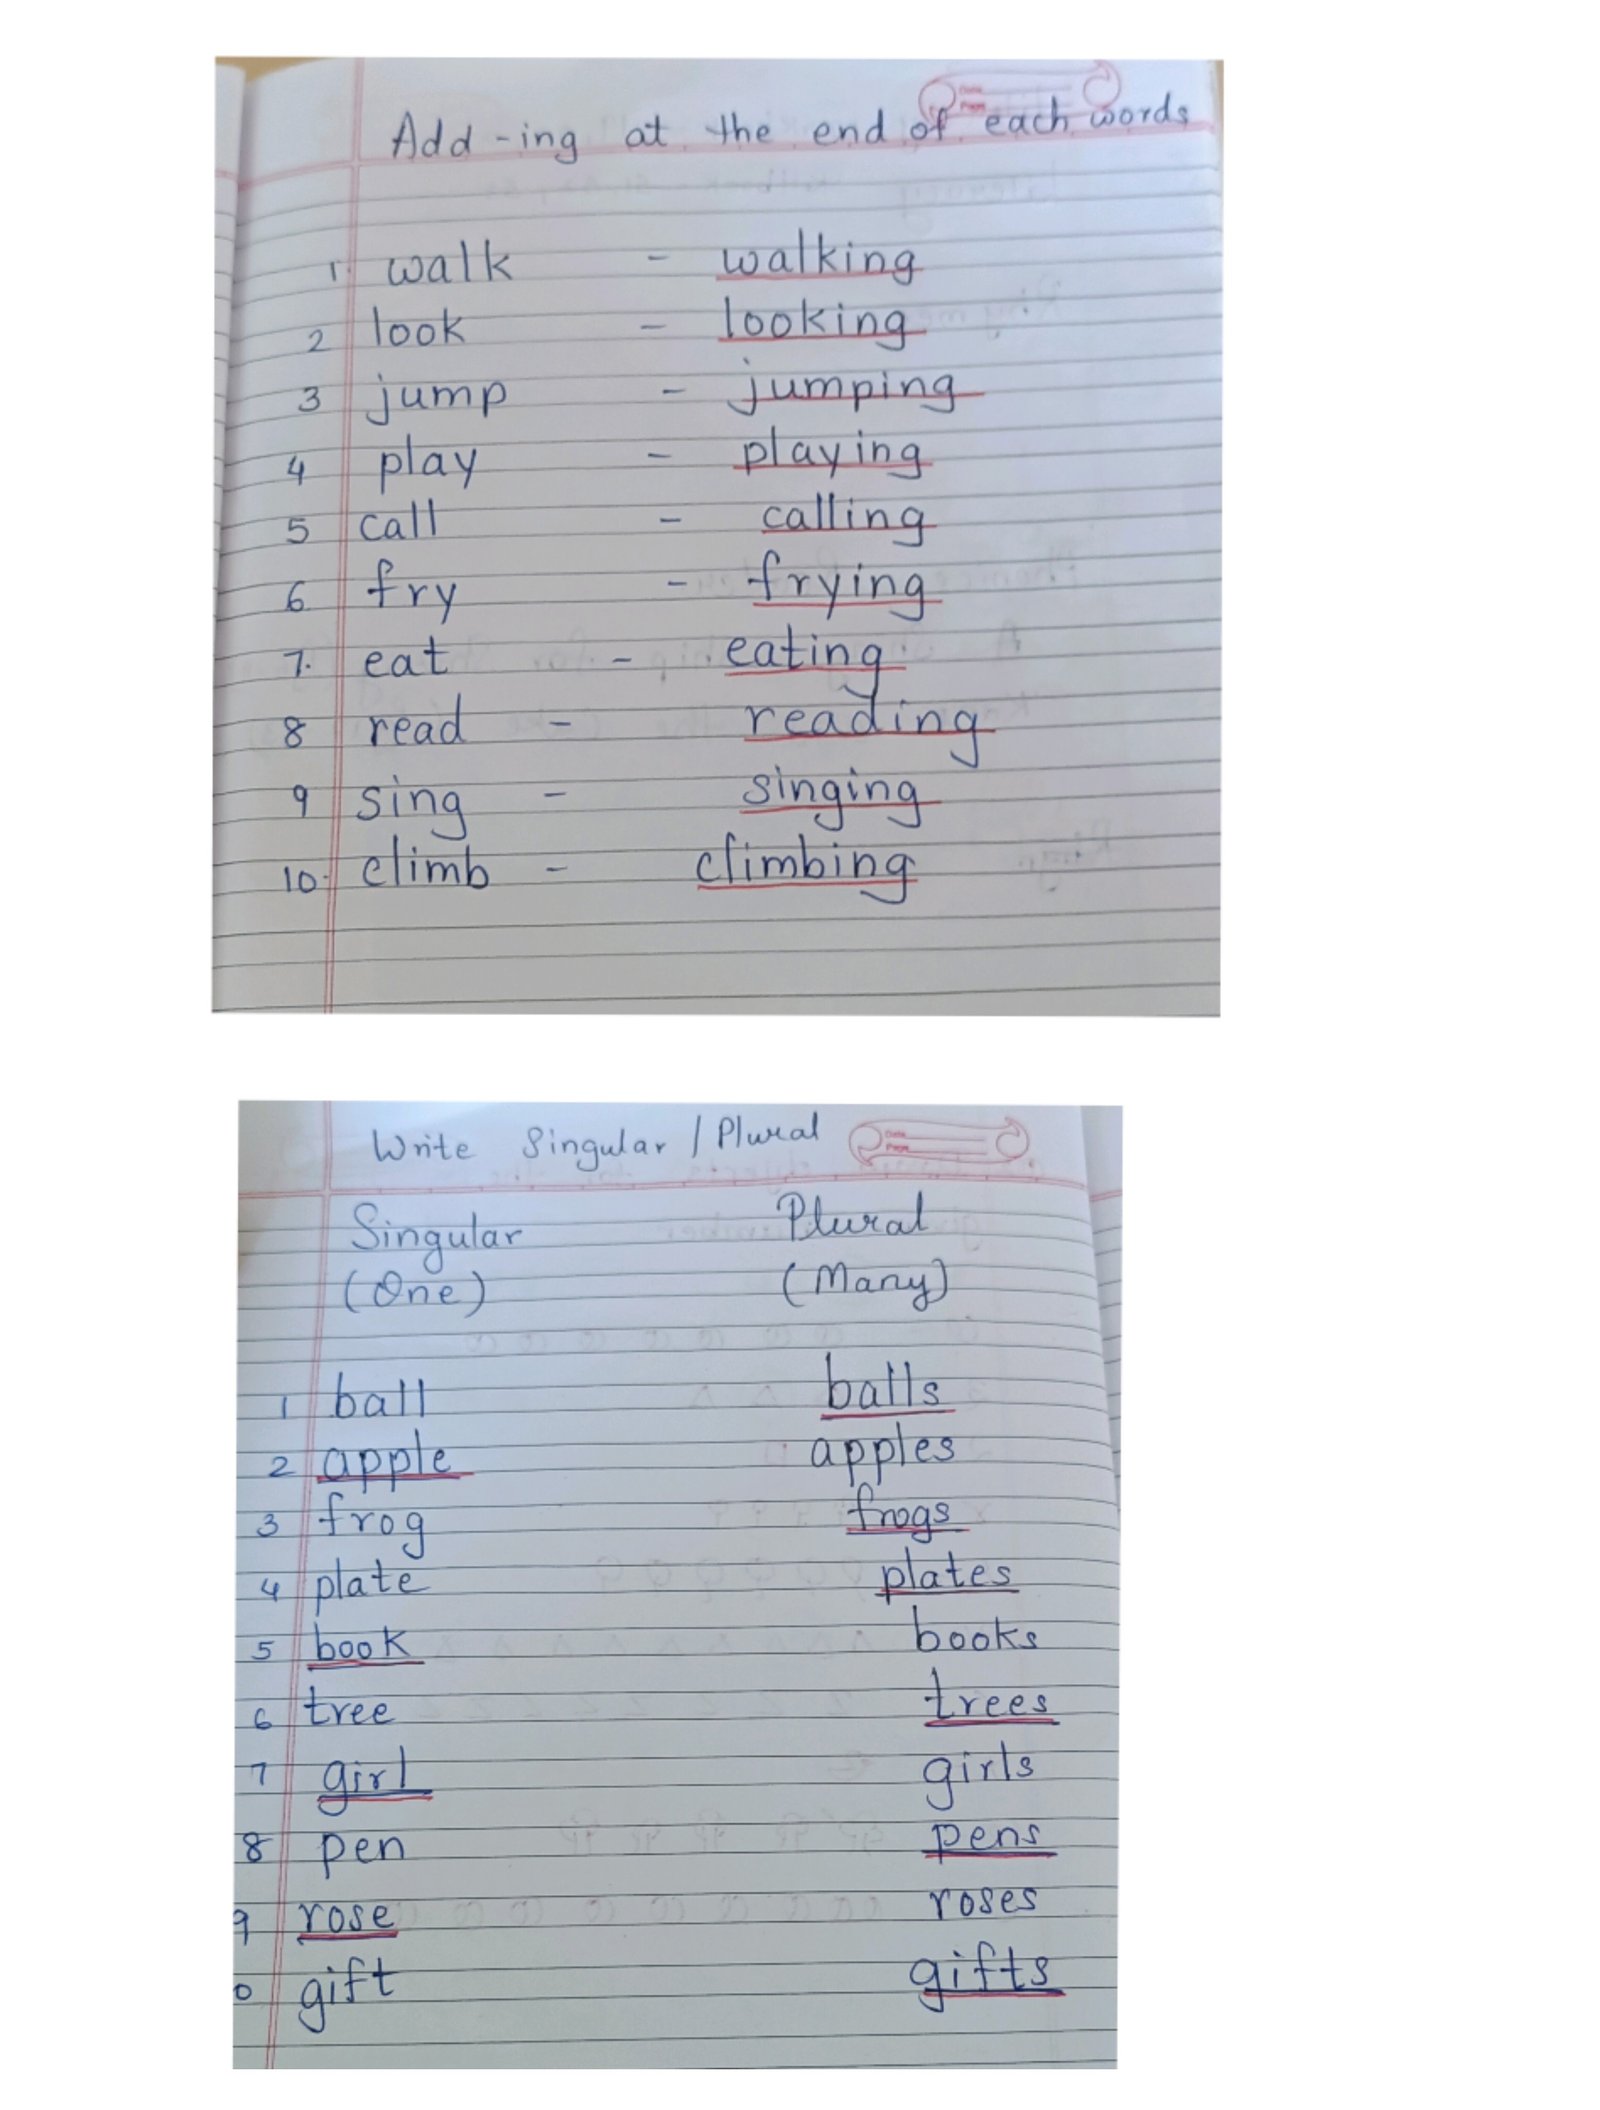 Add -ing at the end of each words
1. walk - walking
2 look - looking
3 jump - jumping
4 play - playing
5 call - calling
6 fry - frying
7. eat - eating
8 read - reading
9 sing - singing
10. climb - climbing
Write Singular / Plural
Singular Plural
(One) (Many)
1 ball balls
2 apple apples
3 frog frogs
4 plate plates
5 book books
6 tree trees
7 girl girls
8 pen pens
9 rose roses
0 gift gifts